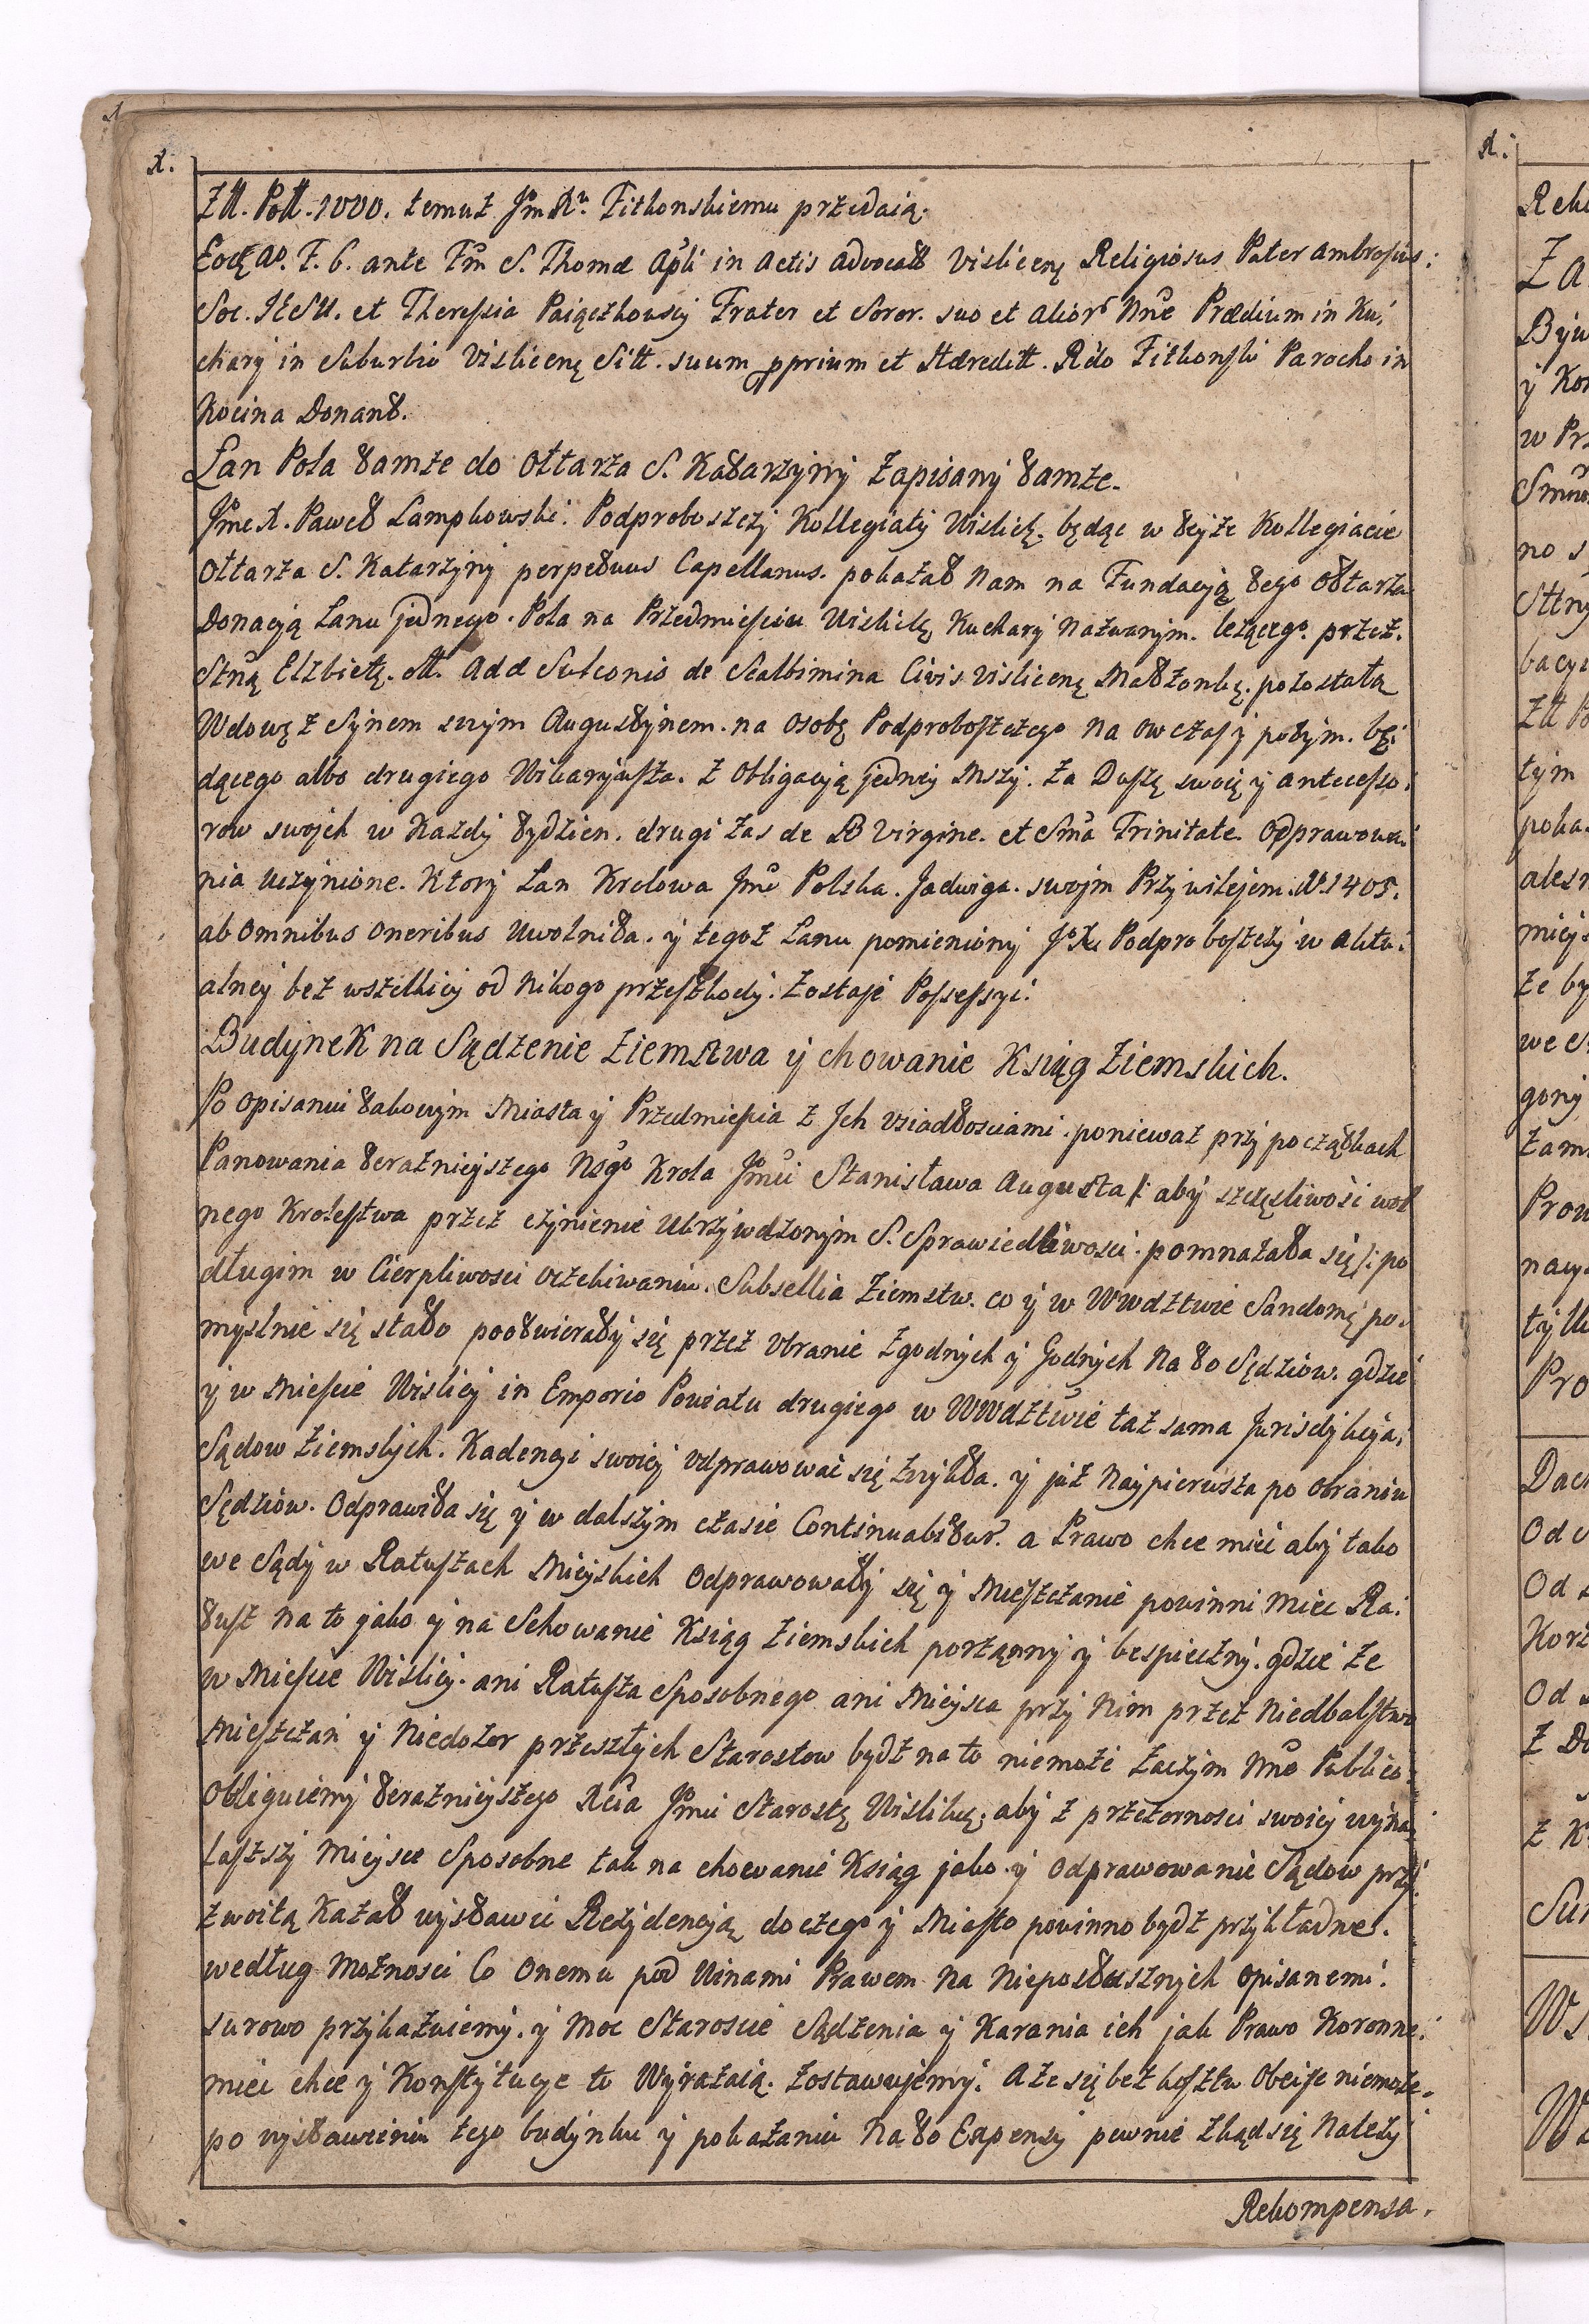 X.
Zll. Poll. 1000. temuz Jm Xu. Fitkonskiemu przedaią.
Eodę Ao. F. 6. ante Fm S. Thomæ Apli in Actis Advocatt Vislicenę Religiosus Pater Ambrosius.
Soc. JESU. et Theressia Paiączkowscy Frater et Soror. suo et alior Nne Prædium in Ku:
chary in Suburbio Vislicenę Sitt. suum pprium et Hæreditt. Rdo Fitkonski Parocho in
Kocina Donant.
Łan Pola tamze do Ołtarza S. Katarzyny Zapisany tamze.
Jmc X. Paweł Lampkowski. Podproboszczy Kollegiaty Wislickę. będąc w teyze Kollegiacie
Ołtarza S. Katarzyny perpetuus Capellanus. pokazał Nam na Fundacyą tego Ołtarza
Donacyą Lanu jednego. Pola na Przedmiesciu Wislickę Kuchary Nazwanym. lezącego. przez.
Stną Elzbietę. olt. Adæ Sulconis de Scalbimina Civis Vislicenę Małżonkę. pozostałą
Wdowę z Synem swym Augustynem. na osobę Podproboszczego na owczas y potym. bę:
dącego albo drugiego Wikaryusza. z Obligacyą jedney Mszy. za Duszę swoię y Antecesso:
row swojch w Kazdy tydzien. drugi zas de B Virgine. et Sma Trinitate. Odprawowa:
nia uczynione. Ktory Lan Krolowa Jmc Polska. Jadwiga. swojm Przywilejem. Ao 1405.
ab omnibus oneribus Uwolniła. y tegoz Lanu pomieniony Jo Xu Podproboszczy w aktu:
alney bez wszelkiey od Nikogo przeszkody. zostaje Possessyi.
Budynek na Sądzenie Ziemstwa y chowanie Ksiąg Ziemskich.
Po Opisaniu takowym Miasta y Przedmiescia z Jch Usiadłosciami. poniewaz przy początkach
Panowania teraznieyszego Nsgo Krola Jmci Stanisława Augusta /: aby szczęsliwosci wol
nego Krolestwa przez czynienie Ukrzywdzonym S. Sprawiedliwosci. pomnazała się :/ po
długim w Cierpliwosci oczekiwaniu. Subsellia Ziemstw. co y w Wwdztwie Sandomę po:
myslnie się stało pootwierały się przez Obranie Zgodnych y Godnych Na to Sędziow. gdzie
y w Miescie Wislicy in Emporio Powiatu drugiego w WWdztwie taz sama Jurisdykcya,
Sądow Ziemskych. Kadencyi swoiey odprawować się zwykła. y juz Naypierwsza po Obraniu
Sędziow. Odprawiła się y w dalszym czasie Continuabitur. a Prawo chce mieć aby tako
we Sądy w Ratuszach Mieyskich Odprawowały się y Mieszczanie powinni miec Ra:
tusz na to jako y na Schowanie Ksiąg Ziemskich porząnny y bespieczny. gdzie ze
w Miescie Wislicy. ani Ratusza Sposobnego ani Mieysca przy Nim przez Niedbalstwo
Mieszczan y Niedozor przeszłych Starostow bydz na to niemoze zaczym Nne Publico.
Obliguiemy teraznieyszego Rcia Jmci Starostę Wislickę. aby z przezornosci swoiey wyna
laszszy Mieysce Sposobne tak na chowanie Ksiąg jako y odprawowanie Sądow przy:
zwoitą Kazał wystawić Rezydencyą do czego y Miasto powinno bydz przykładne.
według Moznosci Co Onemu pod Winami Prawem na Nieposłusznych Opisanemi.
surowo przykazuiemy. y Moc Staroscie Sądzenia y Karania ich jak Prawo Koronne.
mieć chce y Konstytucye to Wyrazaią. zostawujemy. A ze się bez kosztu Obeiść niemoze.
po wystawieniu tego budynku y pokazaniu Na to Expensy pewnie zkąd się Nalezy
Rekompensa.
X.